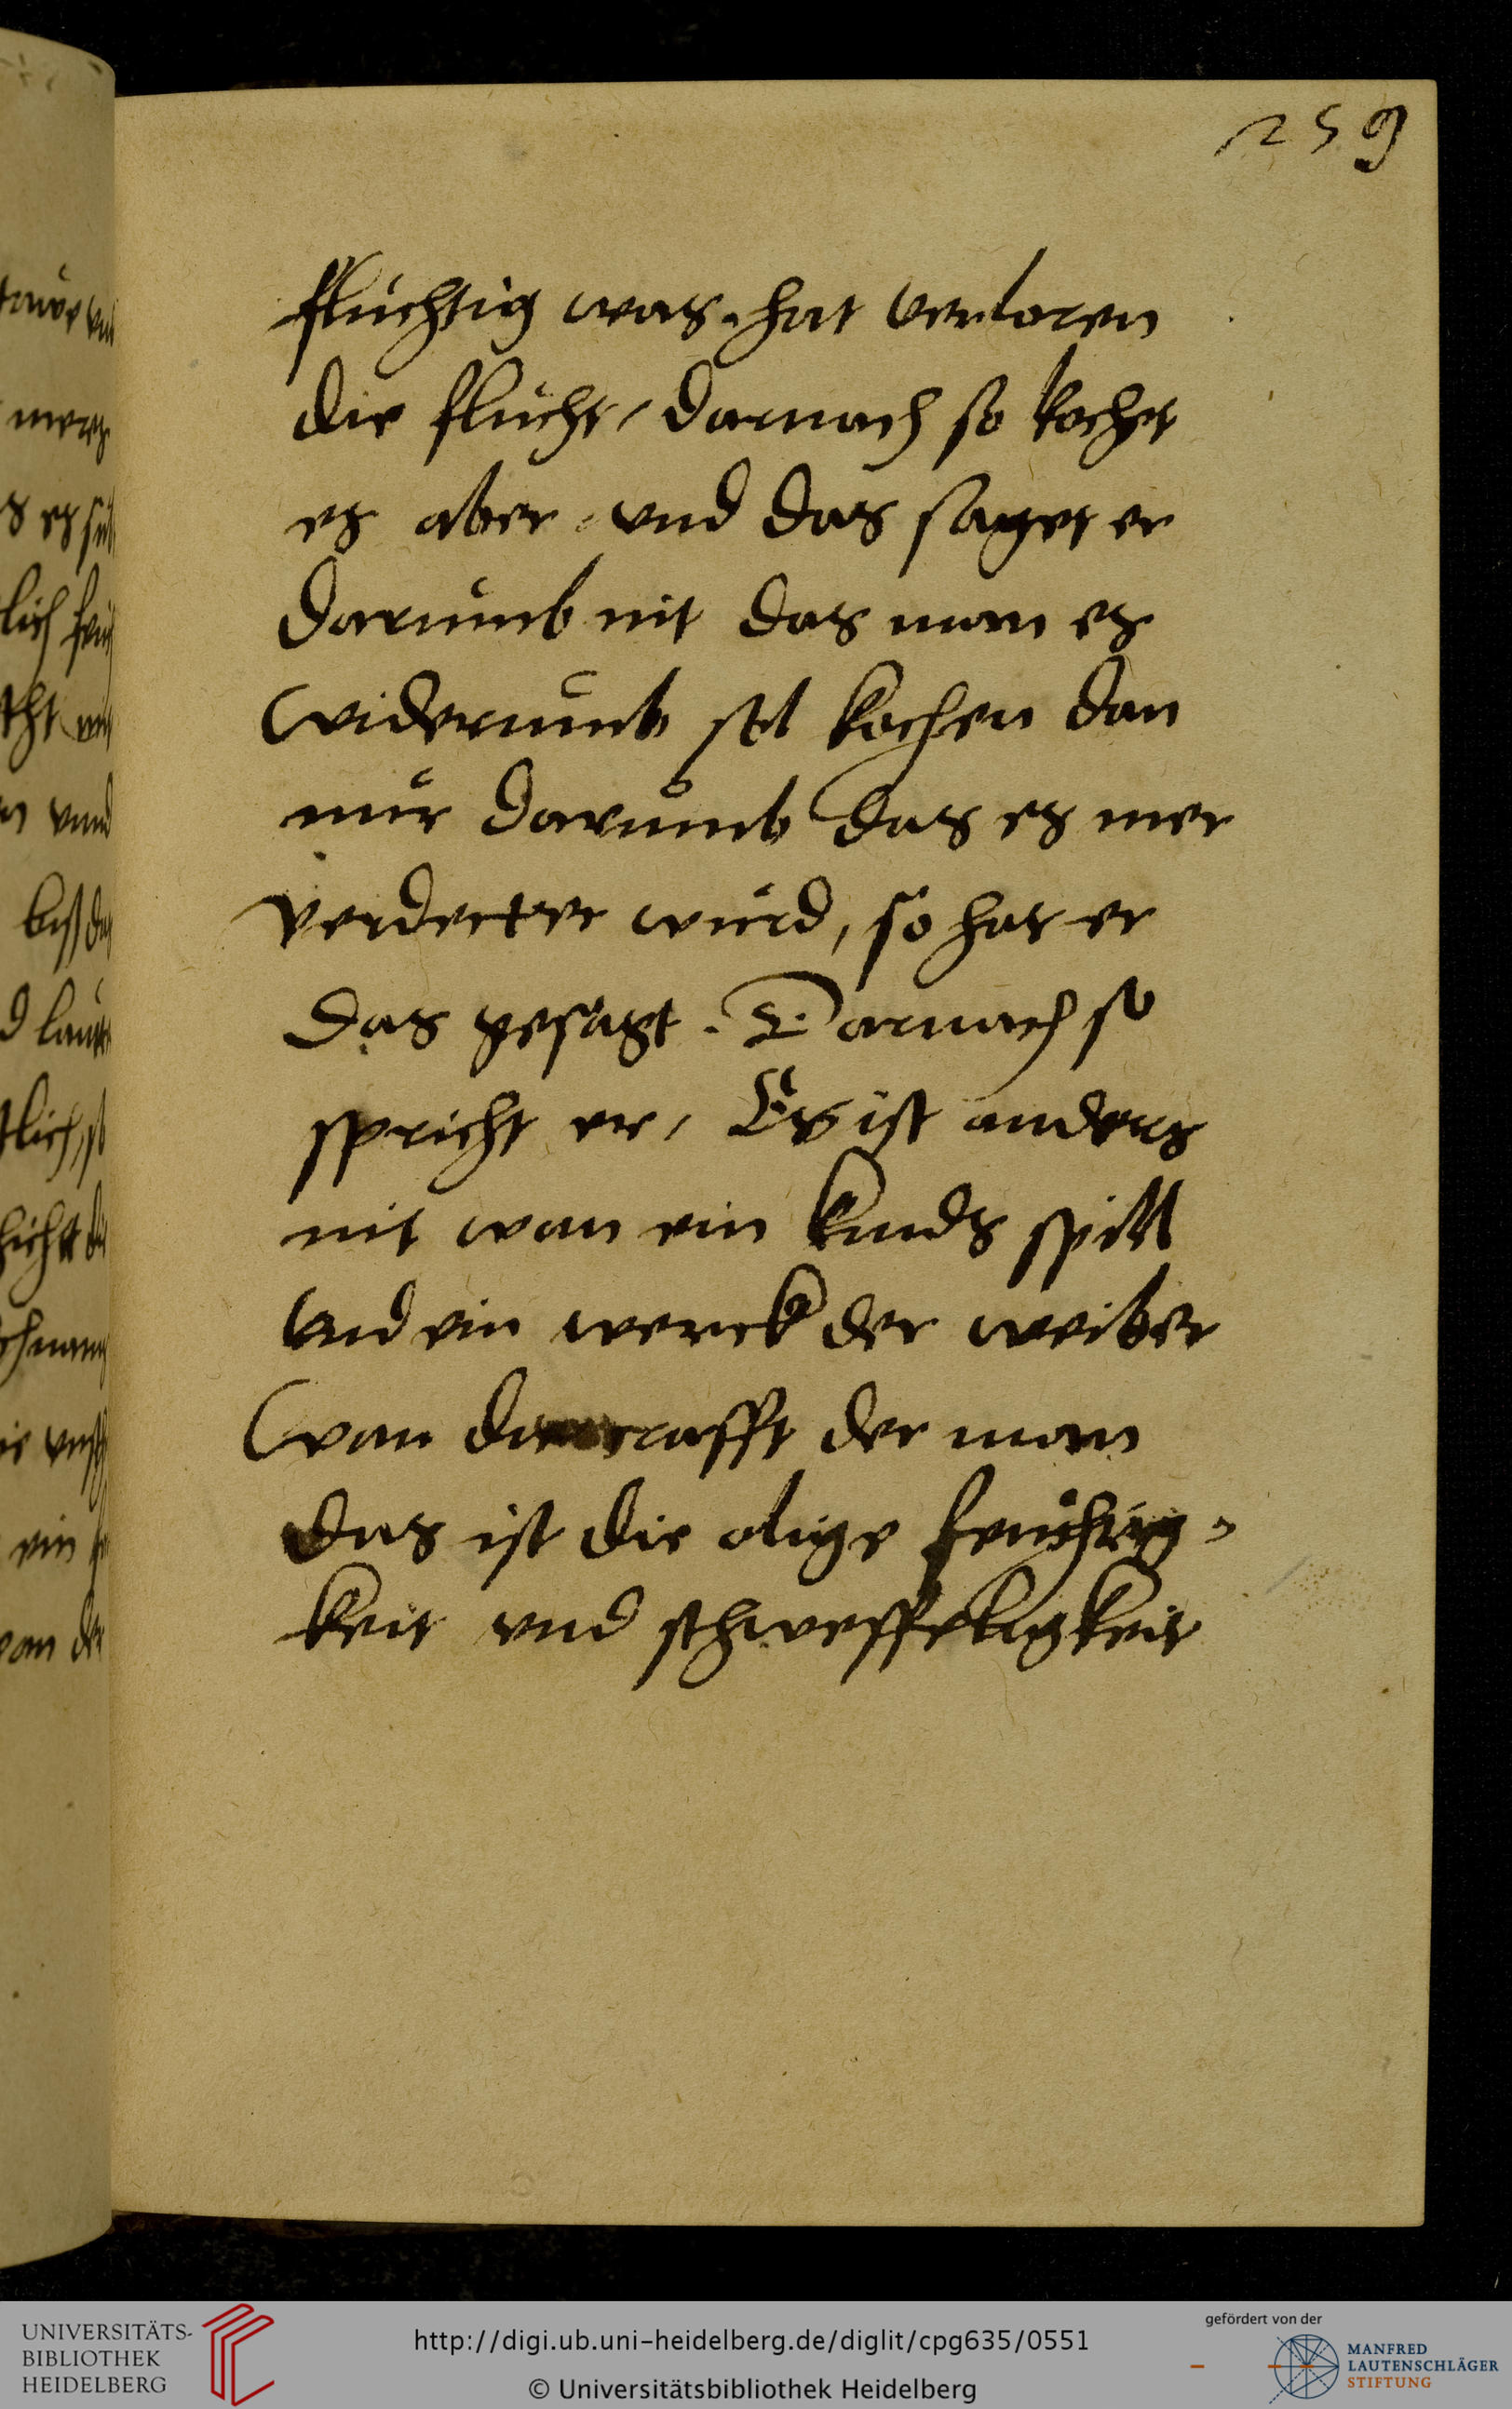 259
fluchtig was. hat verloren
die flucht, darnach so kochet
es aber, vnd das saget er
darumb nit das man es
widerumb sol kochen dan
nur darumb das es mer
verdecter wurd, so hat er
das gesagt. Darnach so
spricht er, Es ist anders
nit wan ein kinds spill
vnd ein werck der weiber
wan die crafft der man
das ist die olige feuchtig-
keit vnd schweffeligkeit
UNIVERSITÄTS-
BIBLIOTHEK
HEIDELBERG
http://digi.ub.uni-heidelberg.de/diglit/cpg635/0551
© Universitätsbibliothek Heidelberg
gefördert von der
MANFRED
LAUTENSCHLÄGER
STIFTUNG